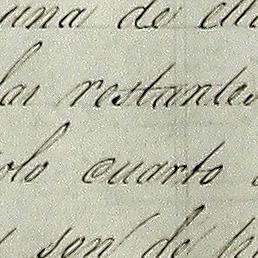 una de
las restantes
cuarto
son de